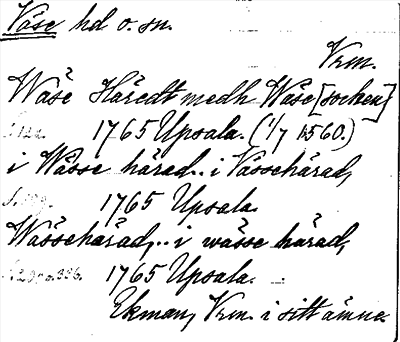 Väse hd o. sn.
Vrm.
Wäse Häredt medh Wäse [socken]
1765 Upsala. (1/7 1560.)
i Wässe härad... i Vässehärad,
1765 Upsala.
Wässehärad,... i wässe härad,
1765 Upsala.
Ekman, Vrm. i sitt ämne.